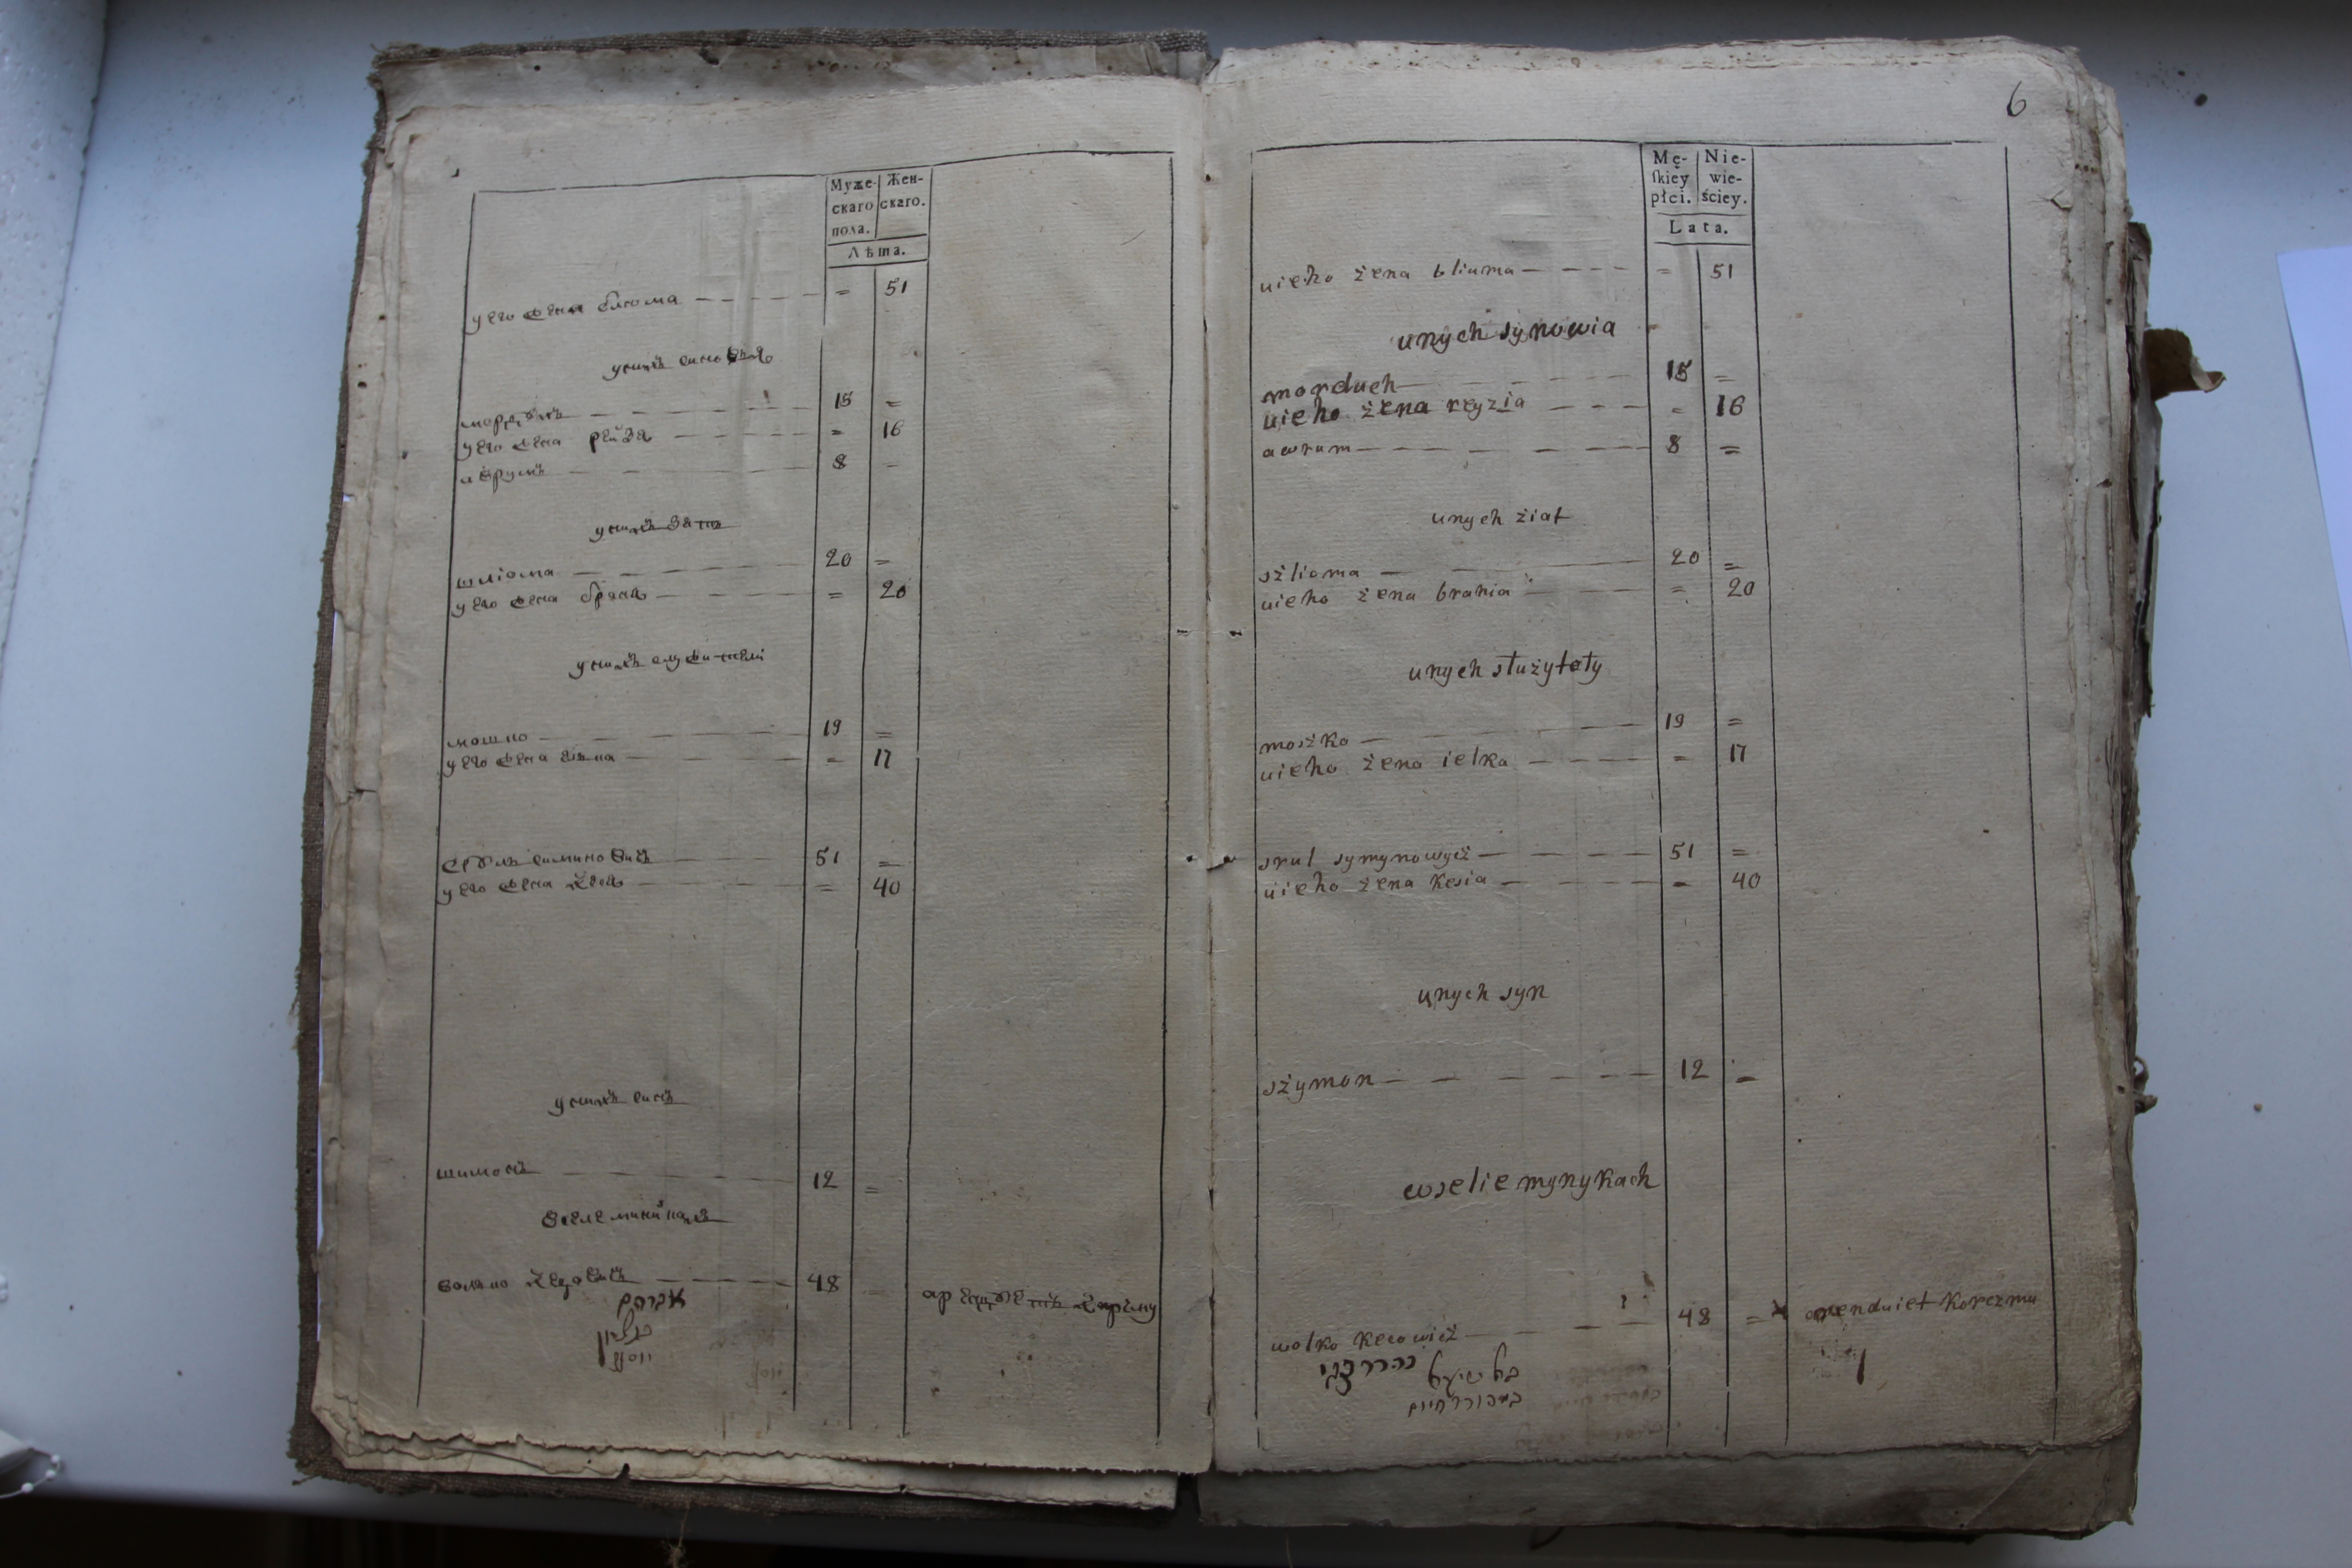 Муже-
скаго
пола.
Жен-
скаго.
Лѣта.
у его жена блюма — 51
унихъ синовья
мордухъ 15 =
у его жена рейзя = 16
аврумъ 8 =
унихъ зять
шліома 20 =
у его жена браня = 20
унихъ служители
мошко 19 =
у его жена = 17
симиновичъ 51 =
у его жена = 40
унихъ синъ
шимонъ 12 =
вселе минйкахъ
волько 48 = корчму
אברהם
יוסף
6
Mę-
skiey
płci.
Nie-
wie-
ściey.
Lata.
uieho żena bliuma = 51
unych synowia
morduch 15 =
uieho żena reyzia = 16
awrum 8 =
unych ziat
szlioma 20 =
uieho żena brania = 20
unych służytely
moszko 19 =
uieho żena ielka = 17
srul symynowycz 51 =
uieho żena kesia = 40
unych syn
szymon 12 =
wselie mynykach
wolko 48 = arenduiet korczmu